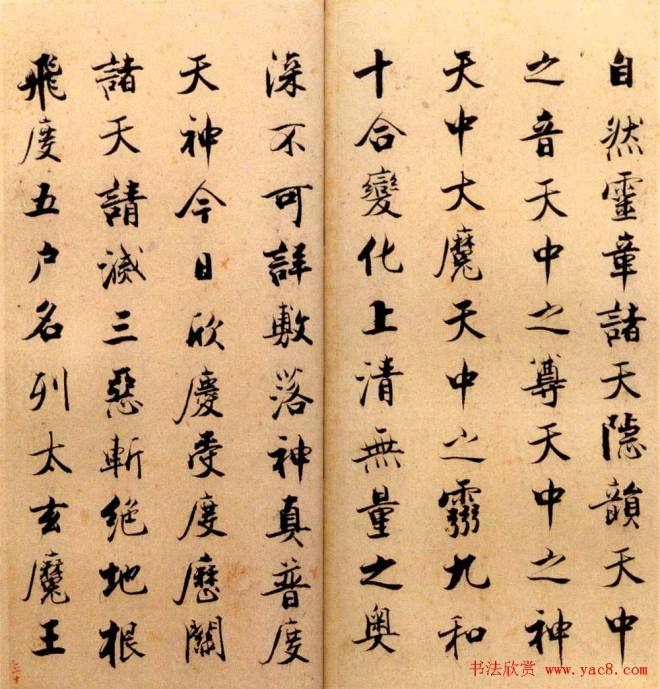 自然靈章諸天隱韻天中
之音天中之尊天中之神
天中大魔天中之靈九和
十合變化上清無量之奧
深不可詳敷落神真普度
天神今日欣慶受度歷關
諸天請滅三惡斬絕地根
飛度五戶名列太玄魔王
三十
书法欣赏 www.yac8.com